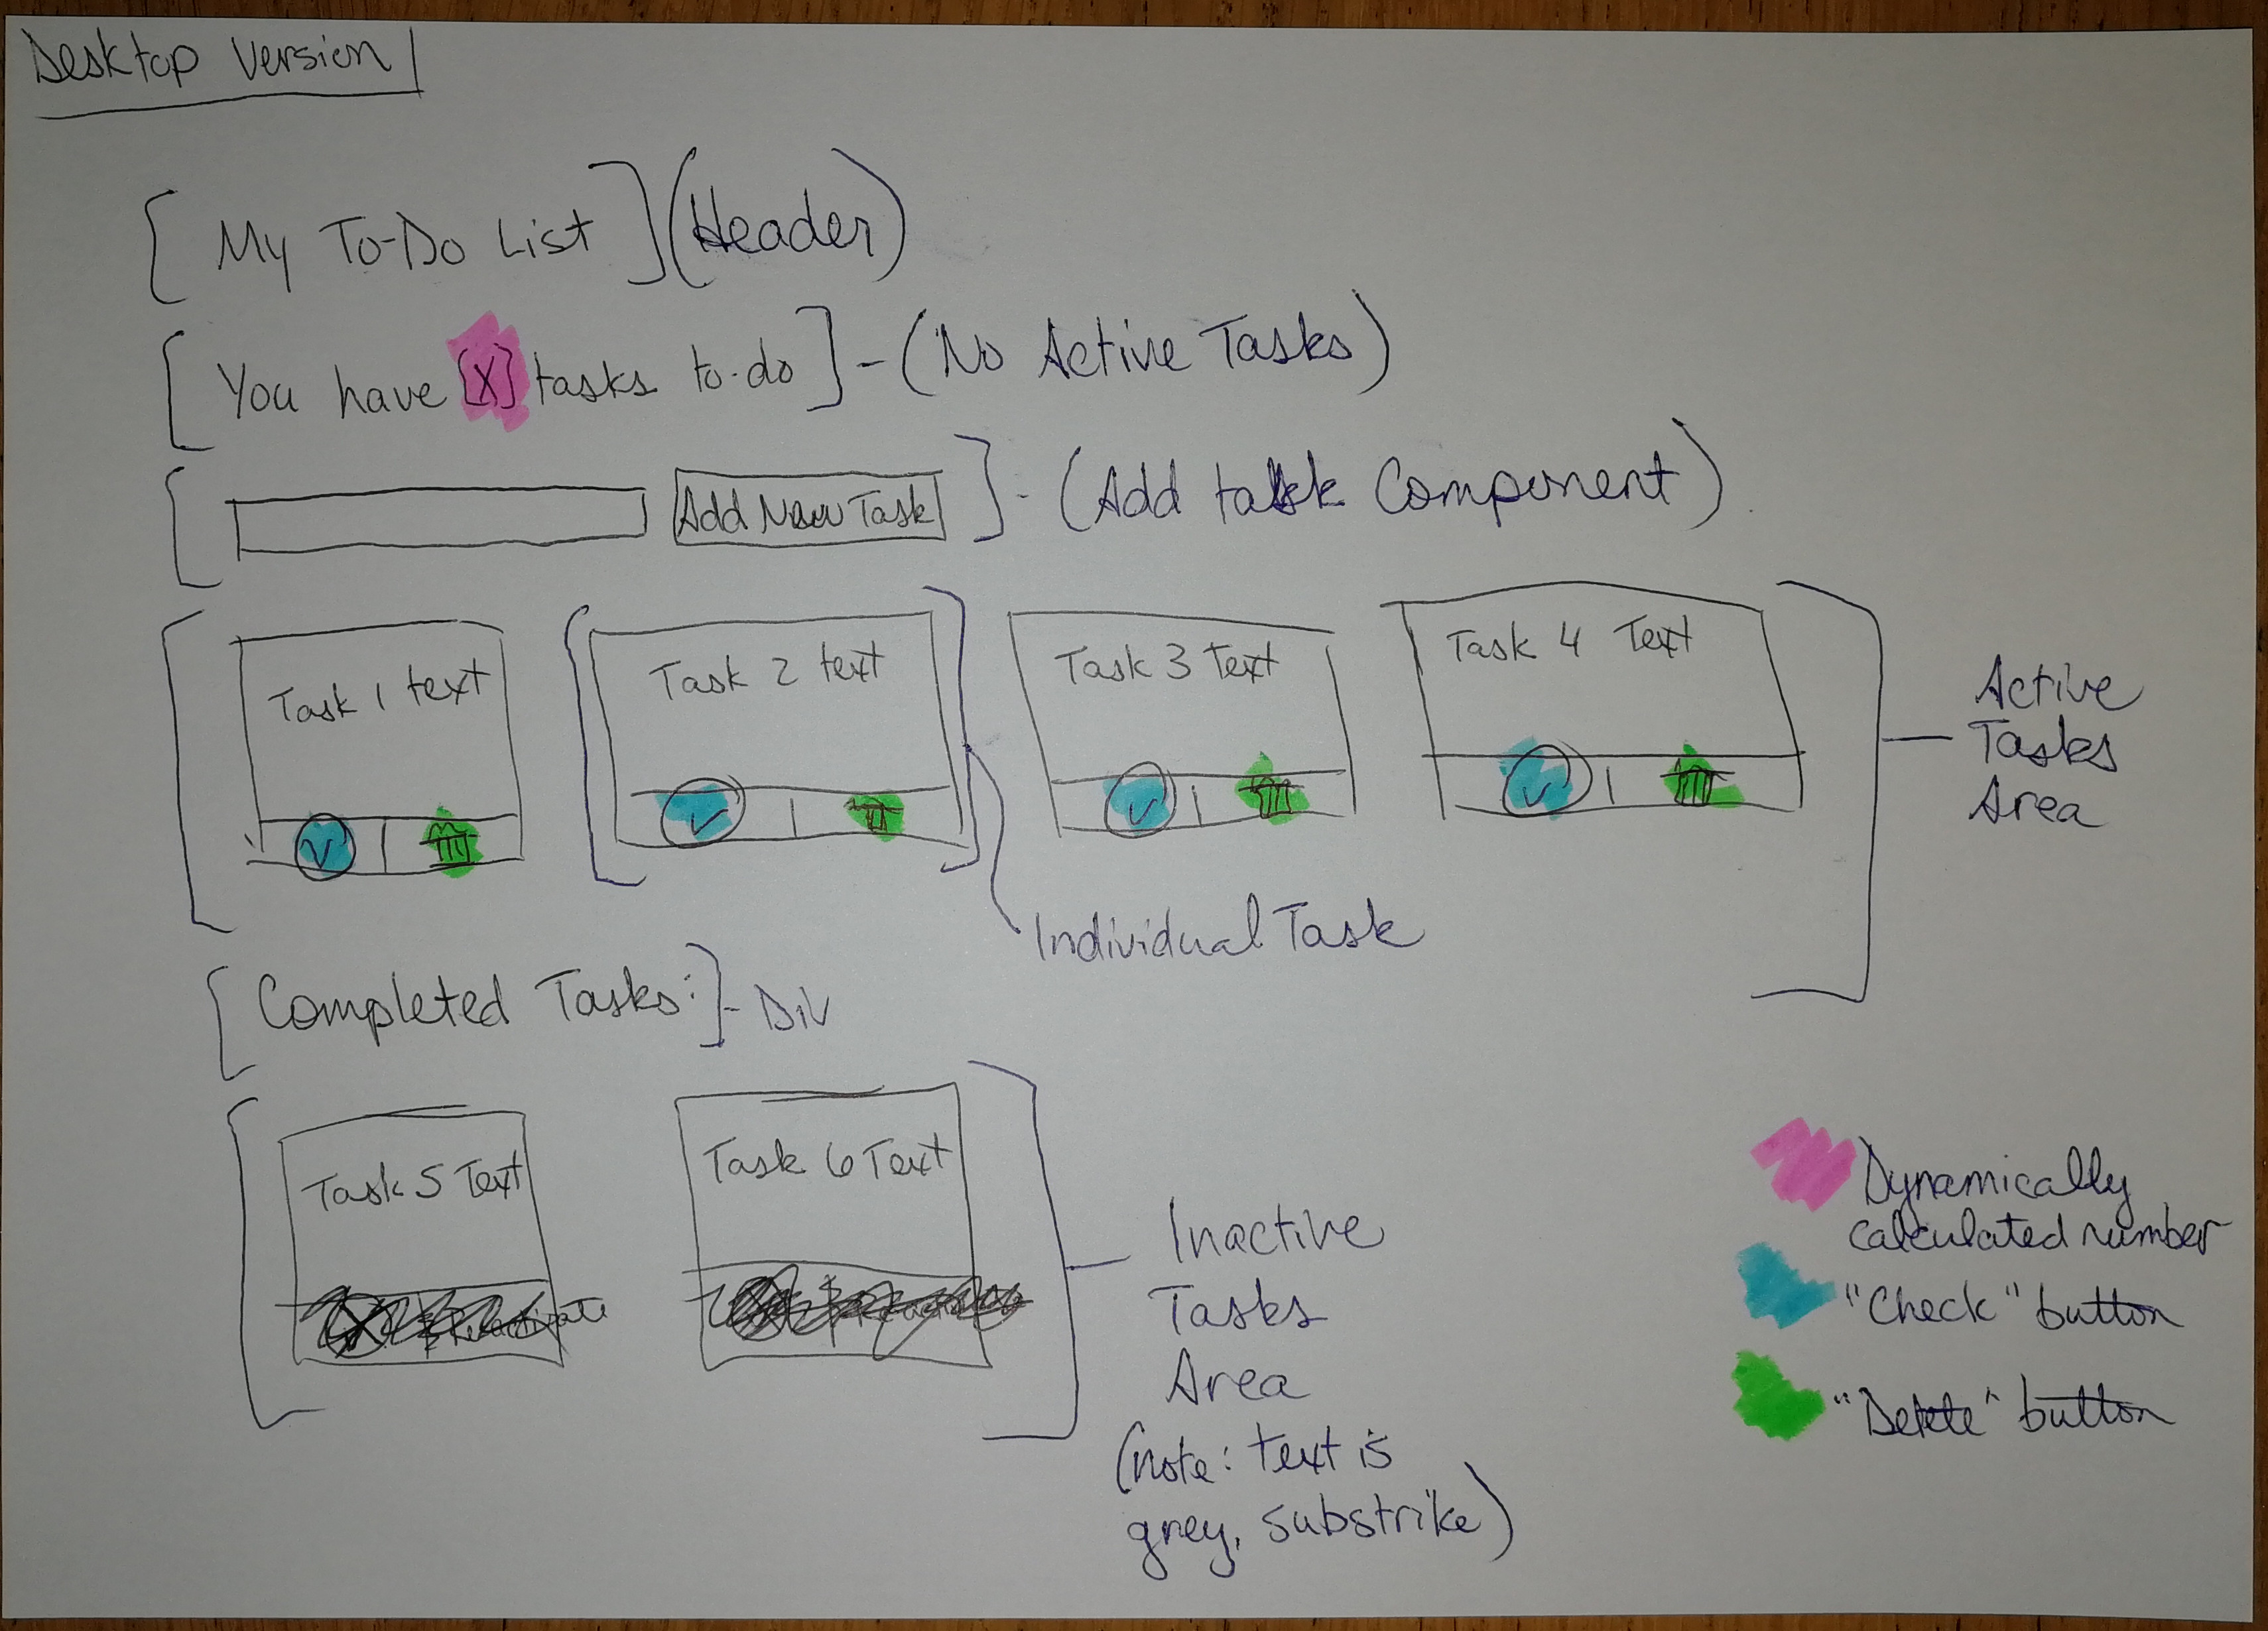 Desktop Version
[ My To-Do List ] (Header)
[ You have [X] tasks to-do ] - (No Active Tasks)
[ Add New Task ] - (Add task Component)
Task 1 text
Task 2 text
Task 3 Text
Task 4 Text
Active
Tasks
Area
Individual Task
[ Completed Tasks: ] - Div
Task 5 Text
Task 6 Text
Reactivate
Inactive
Tasks
Area
(note: text is
grey, substrike)
Dynamically
calculated number
"Check" button
"Delete" button